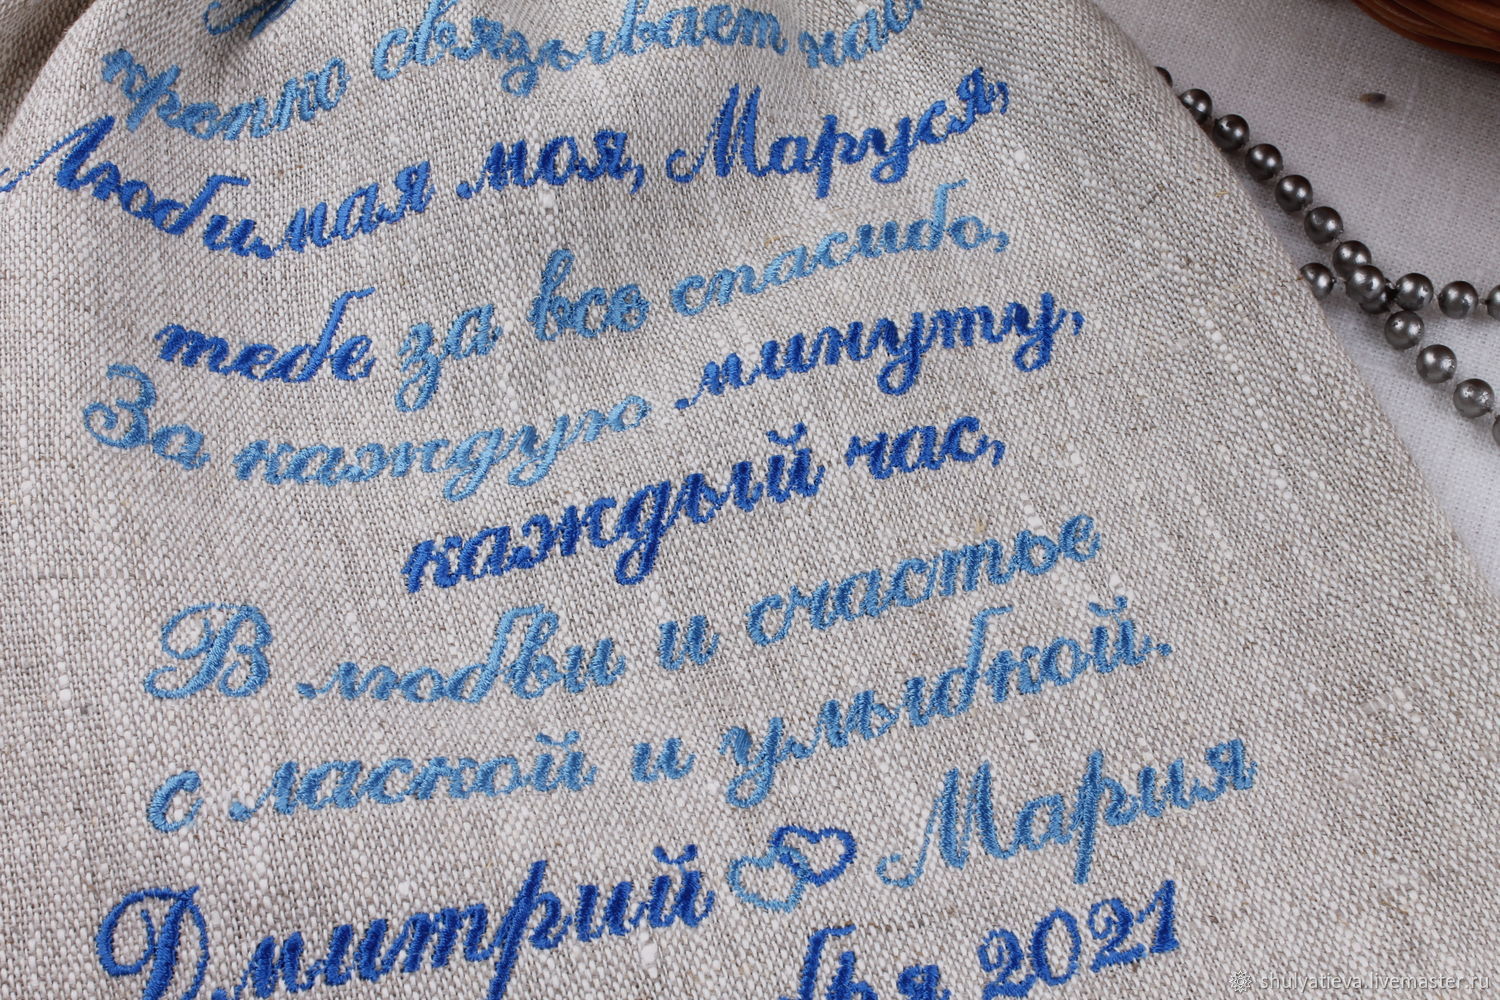 крепко связывает нас
Любимая моя, Маруся,
тебе за все спасибо,
За каждую минуту,
каждый час,
В любви и счастье
с лаской и улыбкой.
Дмитрий Мария
бря 2021
shulyatieva.livemaster.ru